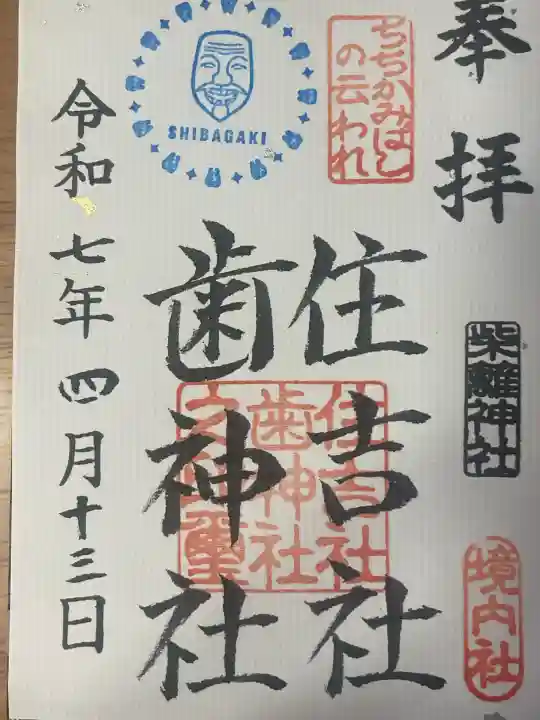 奉拝
柴籬神社
境内社
ちちかみばし
の云われ
住吉社
歯神社
住吉社
歯神社
之璽
SHIBAGAKI
令和七年四月十三日